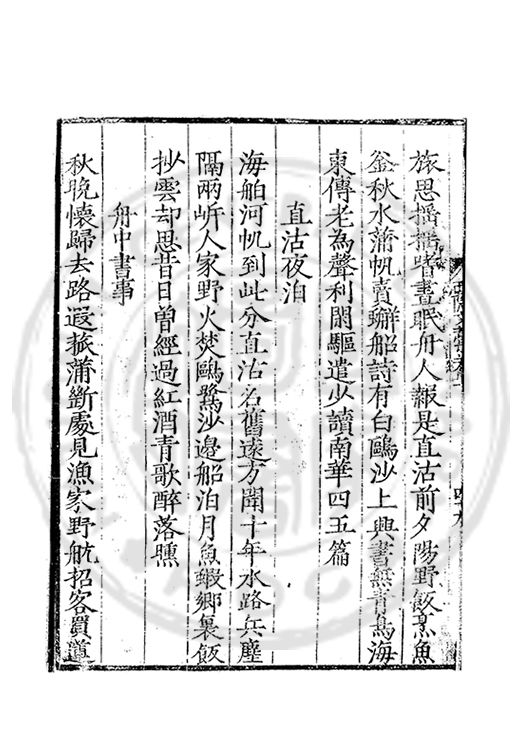 旅思搖搖嗜晝眠舟人報是直沽前夕陽野飯烹魚
釜秋水蒲帆賣蠏船詩有白鷗沙上興書無青鳥海
東傳老為聲利閒驅遣少讀南華四五篇
直沽夜泊
海舶河帆到此分直沽名舊遠方聞十年水路兵塵
隔兩岍人家野火焚鷗鷺沙邊船泊月魚蝦鄉裏飯
抄雲却思昔日曽經過紅酒青歌醉落曛
舟中書事
秋晚懷歸去路遐菰蒲斷處見漁家野航招客買